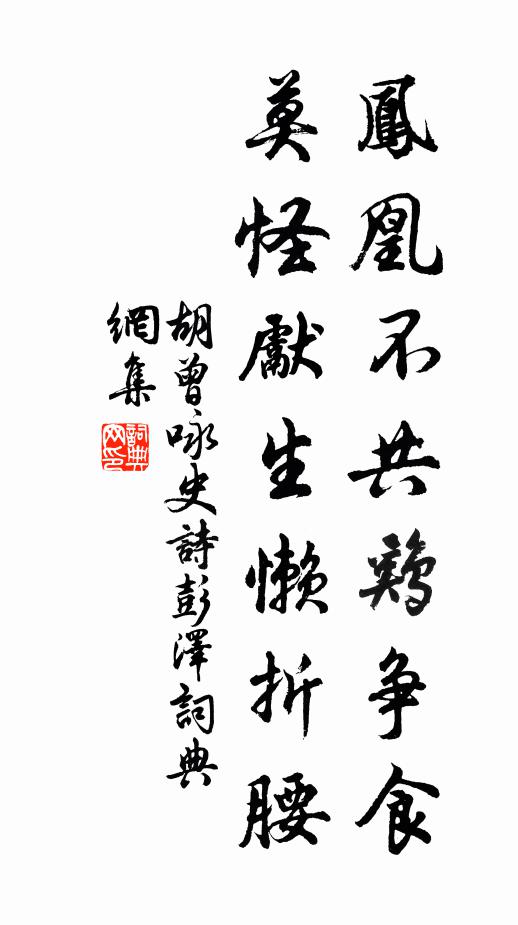 鳳凰不共鷄争食
莫怪獻生懶折腰
胡曾咏史詩彭澤詞典
網集
詞典
网印